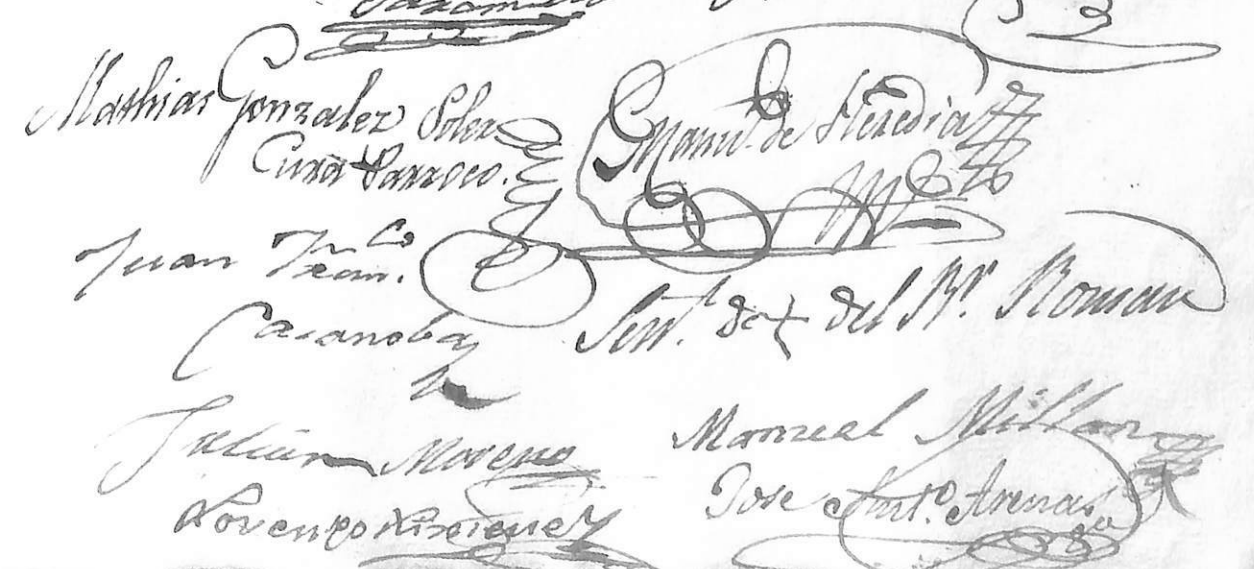 Mathias Gonzalez Soler
Cura Parroco.
Manu.l de Heredia
Juan Fran.co
Casanoba
Señ.l de + del Sr. Roman
Julian Moreno
Manuel Millan
Lorenzo Ximenez
Jose Ant.o Arenas